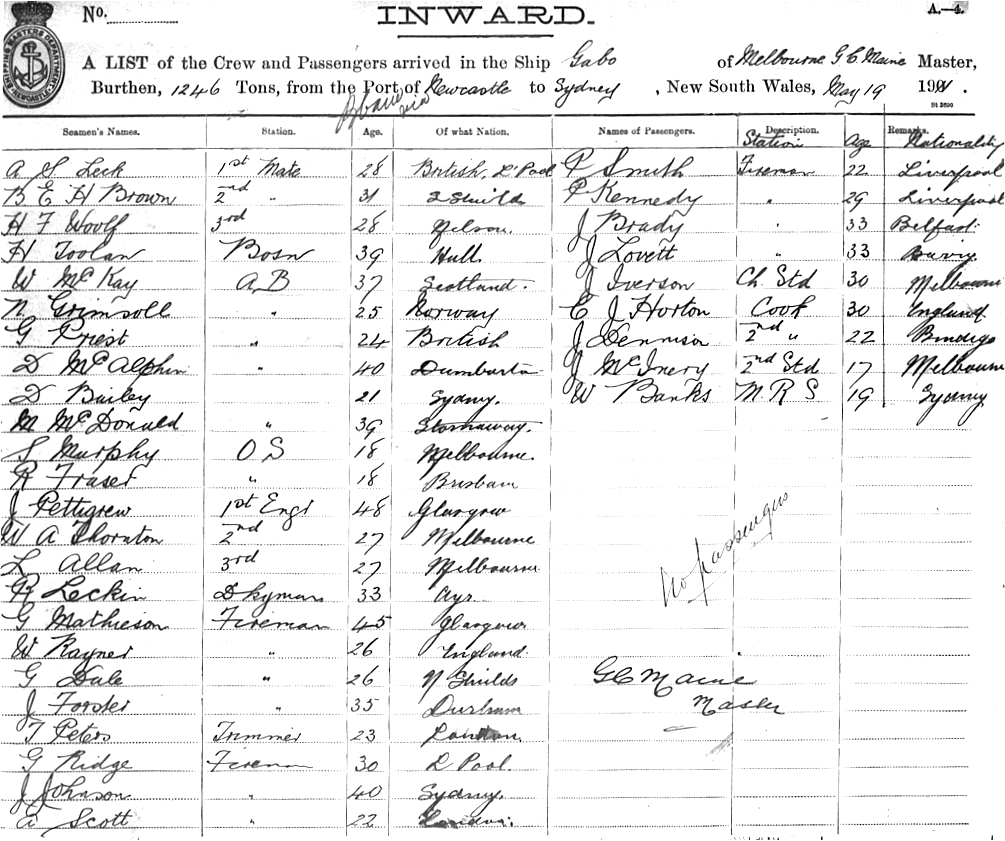 No. INWARD. A.—4.
SHIPPING MASTERS DEPARTMENT NEWCASTLE
A LIST of the Crew and Passengers arrived in the Ship Gabo of Melbourne G C Maine Master,
Burthen, 1246 Tons, from the Port of Newcastle to Sydney, New South Wales, May 19 19
via
Seamen's Names. Station. Age. Of what Nation. Names of Passengers. Description. Station Age Remarks. Nationality
A S Leck 1st Mate 28 British, L Pool P Smith Fireman 22 Liverpool
B E H Brown 2nd " 31 S Shields P Kennedy " 29 Liverpool
H F Woolf 3rd 28 Nelson. J Brady " 33 Belfast
H Toolan Bosn 39 Hull J Lovett " 33
W McKay A B 37 Scotland. J Iverson Ch Std 30 Melbourne
N Grimsoll " 25 Norway C J Horton Cook 30 England
G Priest " 24 British J Dennison 2nd " 22 Bindigo
D McAlphin " 40 Dumbarton J McInery 2nd Std 17 Melbourne
D Bailey 21 Sydney. W Banks M R S 19 Sydney
M McDonald " 39 Stornaway.
S Murphy O S 18 Melbourne.
R Fraser " 18 Brisbane
J Pettigrew 1st Engr 48 Glasgow
W A Thornton 2nd 27 Melbourne
L Allan 3rd 27 Melbourne
R Leckin Dkyman 33 Ayr
G Mathieson Fireman 45 Glasgow
W Rayner " 26 England
G Dale " 26 N Shields
J Forster 35 Durham
T Peters Trimmer 23 London.
G Ridge Fireman 30 L Pool.
J Johnson " 40 Sydney.
A Scott " 22 London.
No passengers
G C Maine
Master